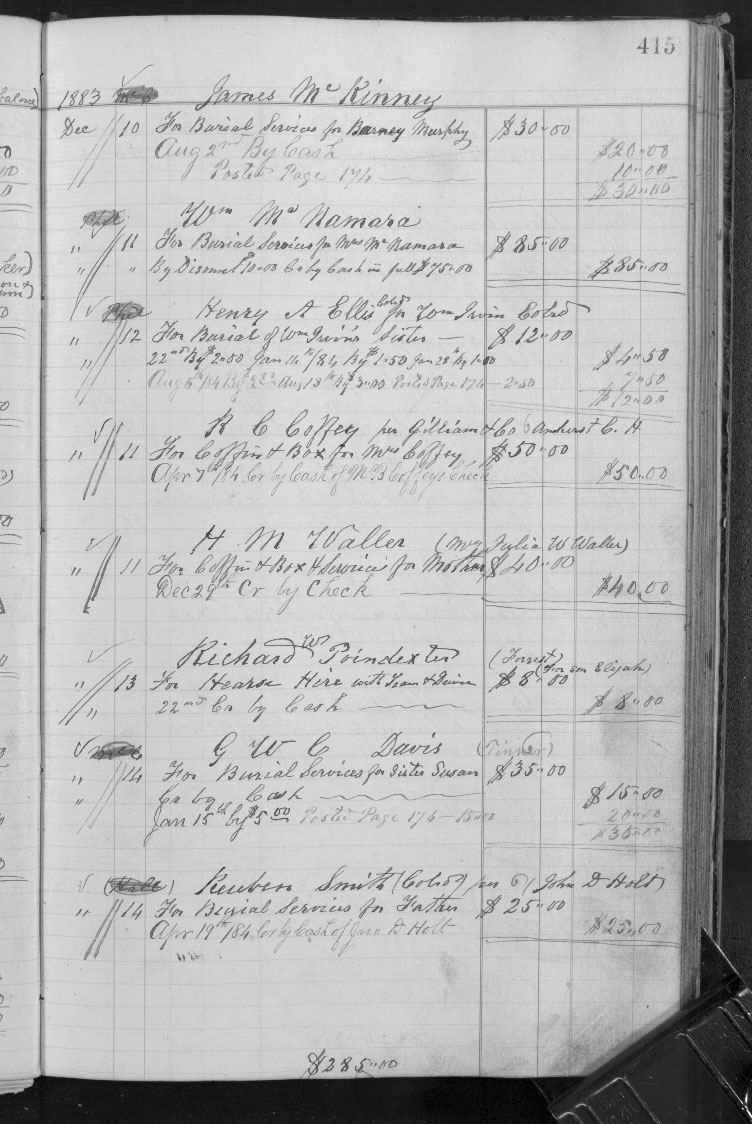 415
1883 James Mc Kinney
Dec 10 For Burial Services for Barney Murphy $30.00
Aug 2nd By Cash $20.00
Posted Page 174 10.00
$30.00
Wm Mc Namara
" 11 For Burial Services for Mrs Mc Namara $85.00
" " By Discount $10.00 Cr by Cash in full $75.00 $85.00
Henry A Ellis Cold for Wm Irvin Cold
" 12 For Burial of Wm Irvin's Sister $12.00
" 22nd By $2.00 Jan 14th/84 By $1.50 Jan 28th By 1.00 $4.50
Aug 6th/84 By 2.00 Aug 13th By 3.00 Posted Page 174 - 2.50 7.50
$12.00
R C Coffey per Gilliam & Co Amherst C. H
" 11 For Coffin & Box for Mrs Coffey $50.00
Apr 7th/84 Cr by Cash of M B Coffeys Check $50.00
H M Waller (Mrs Julia W Waller)
11 For Coffin & Box & Services for Mother $40.00
Dec 29th Cr by Check $40.00
Richard W Poindexter (Forrest)
(For son Elijah)
" 13 For Hearse Hire with Team & Driver $8.00
" 22nd Cr by Cash $8.00
G W C Davis (Tinner)
" 14 For Burial Services for Sister Susan $35.00
" Cr by Cash $15.00
Jan 15th by $5.00 Posted Page 174 - 15.00 20.00
$35.00
(Holt) Reuben Smith (Cold) per (John D Holt)
" 14 For Burial Services for Father $25.00
Apr 19th/84 Cr by Cash of Jno D Holt $25.00
$285.00